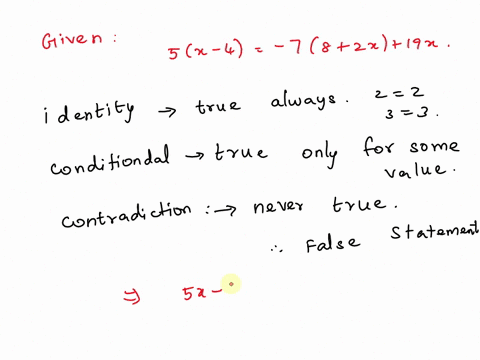 Given :
5(x-4) = -7(8+2x)+19x.
identity → true always. 2 = 2
3 = 3.
conditiondal → true only for some
value.
contradiction : → never true.
∴ False Statement
⇒ 5x -